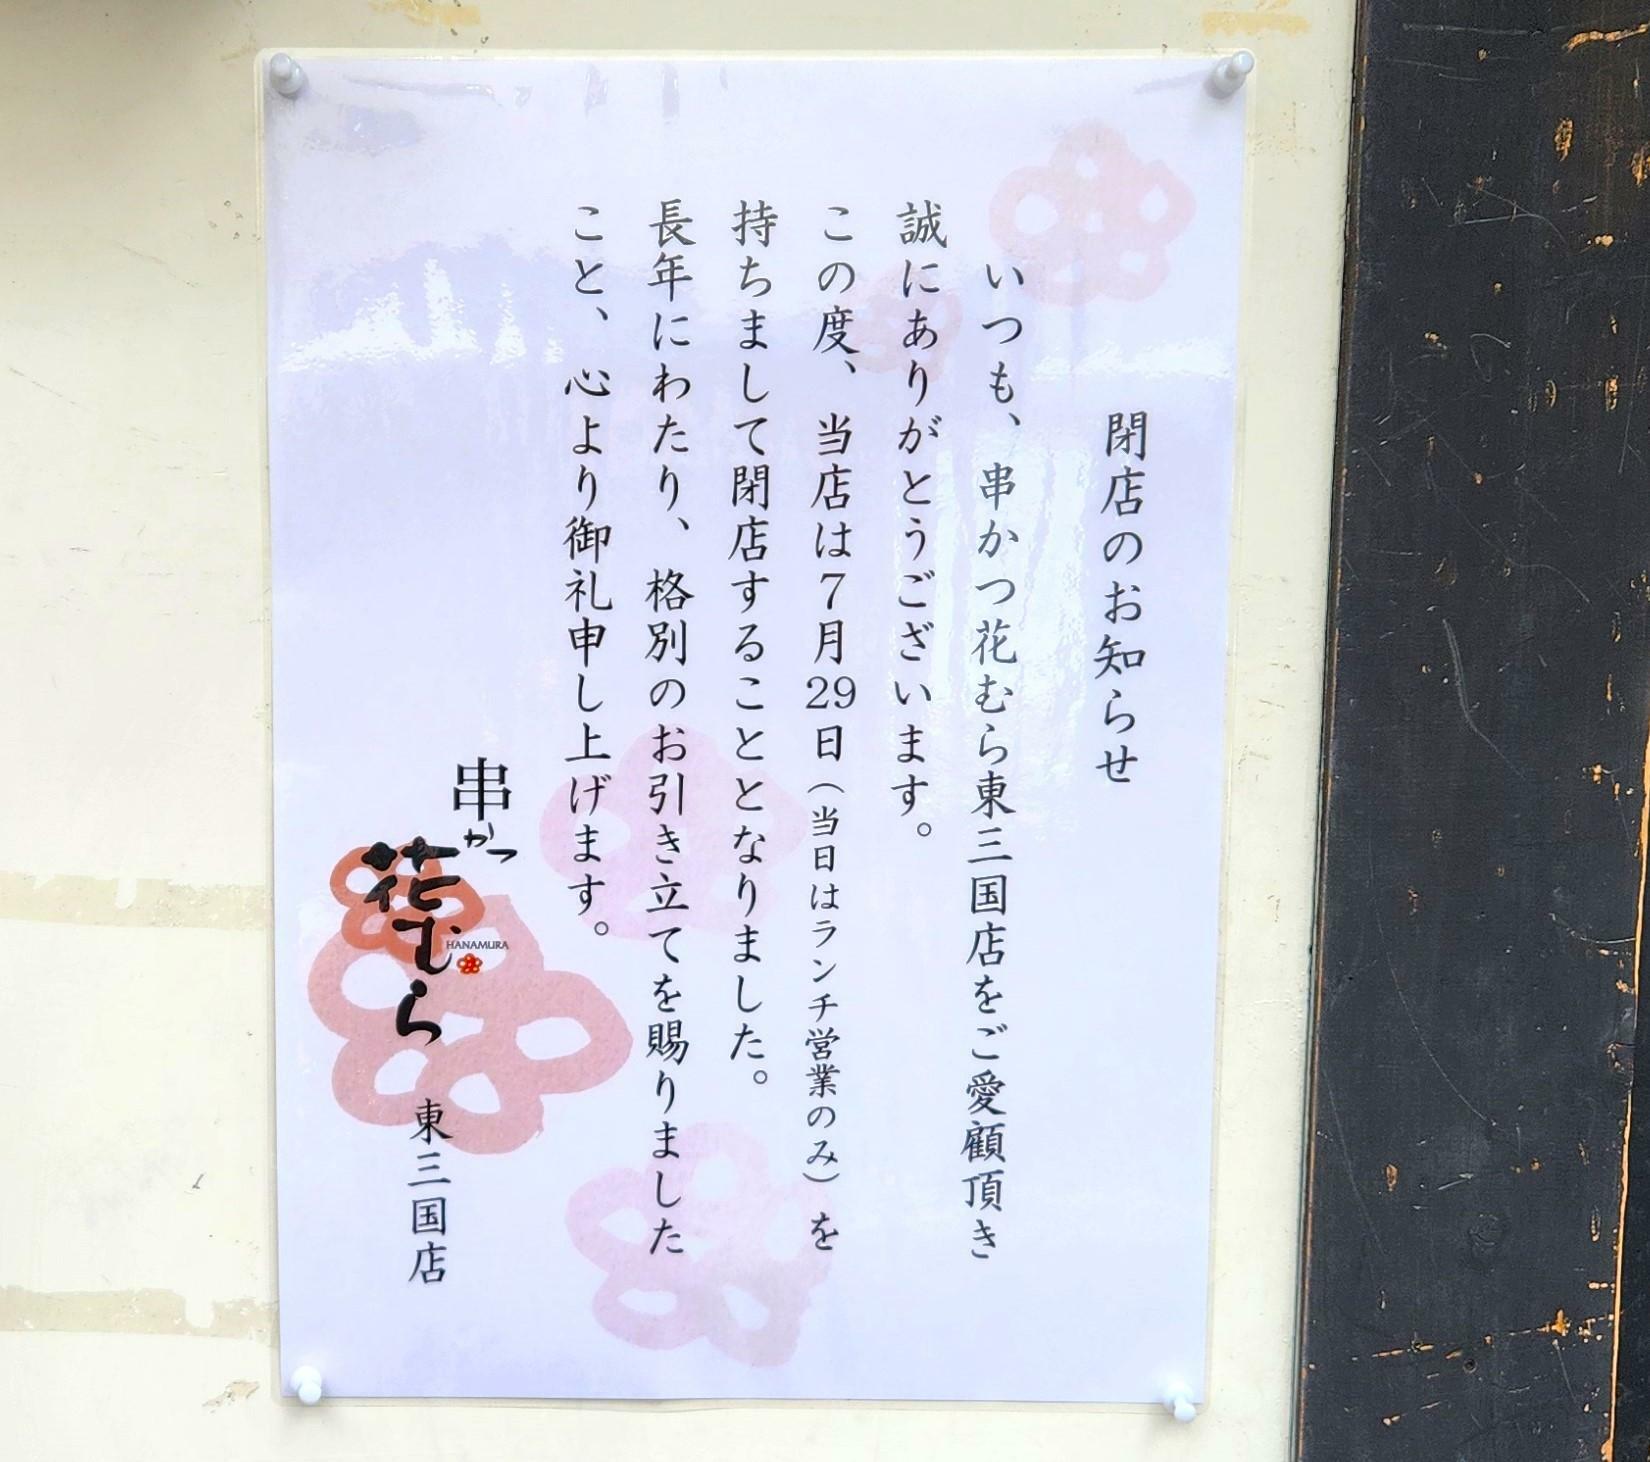 閉店のお知らせ
いつも、串かつ花むら東三国店をご愛顧頂き
誠にありがとうございます。
この度、当店は7月29日（当日はランチ営業のみ）を
持ちまして閉店することとなりました。
長年にわたり、格別のお引き立てを賜りました
こと、心より御礼申し上げます。
串かつ
花むら
HANAMURA
東三国店